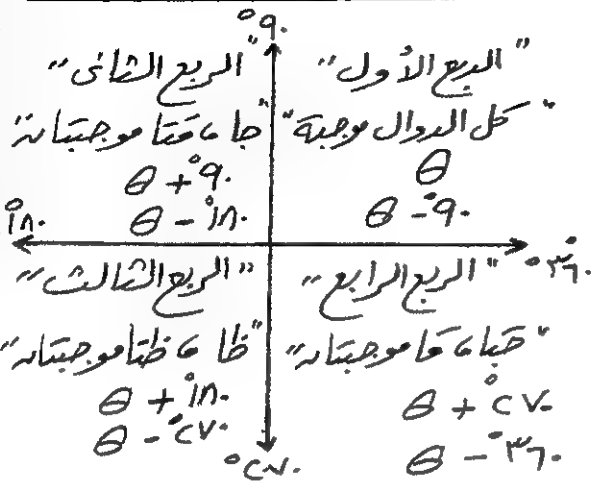 °٩٠
"الربع الأول"
"كل الدوال موجبة"
θ
٩٠° - θ
"الربع الثانى"
"جا ، قتا موجبتان"
٩٠° + θ
١٨٠° - θ
١٨٠°
"الربع الثالث"
"ظا ، ظتا موجبتان"
١٨٠° + θ
٢٧٠° - θ
٢٧٠°
"الربع الرابع"
"جتا ، قا موجبتان"
٢٧٠° + θ
٣٦٠° - θ
٠°
٣٦٠°